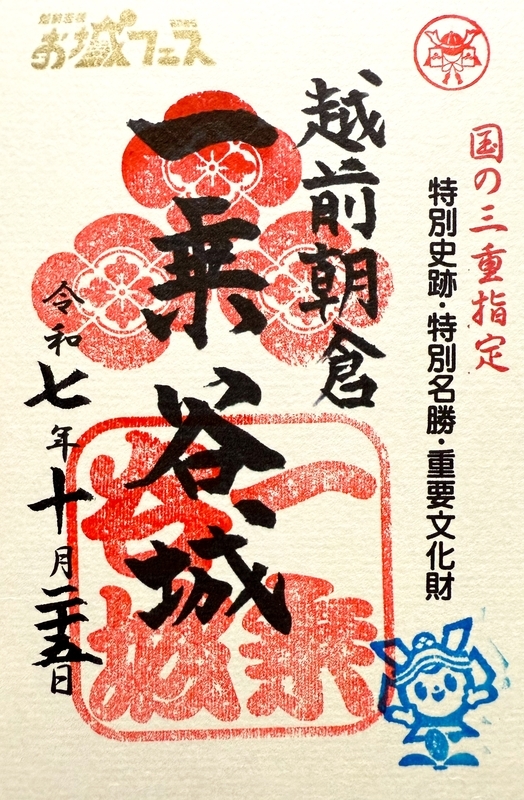 お城フェス
国の三重指定
特別史跡・特別名勝・重要文化財
越前朝倉
一乗谷城
令和七年十月二十五日
一乗
谷城